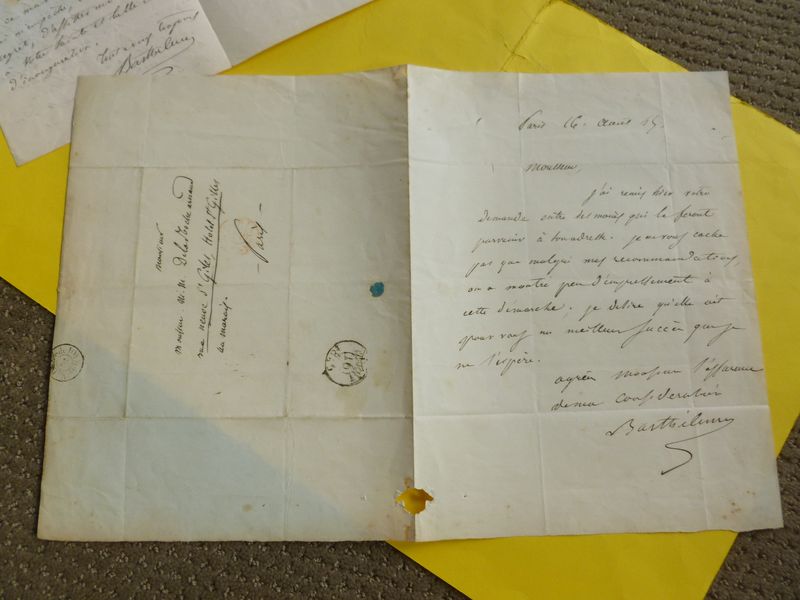 regret, d'affaires
à votre
d'inauguration.
tout à vous toujours
Barthélemy
Monsieur
Monsieur
rue neuve St Gilles, Hotel St Gilles
au marais.
- Paris -
Paris 16 45.
Monsieur,
j'ai remis hier votre
demande entre des mains qui la feront
parvenir à son adresse. je ne vous cache
pas que malgré mes recommandations,
on a montré peu d'empressement à
cette démarche. je desire qu'elle ait
pour vous un meilleur succès que je
ne l'espère.
agréez Monsieur l'assurance
de ma consideration
Barthélemy